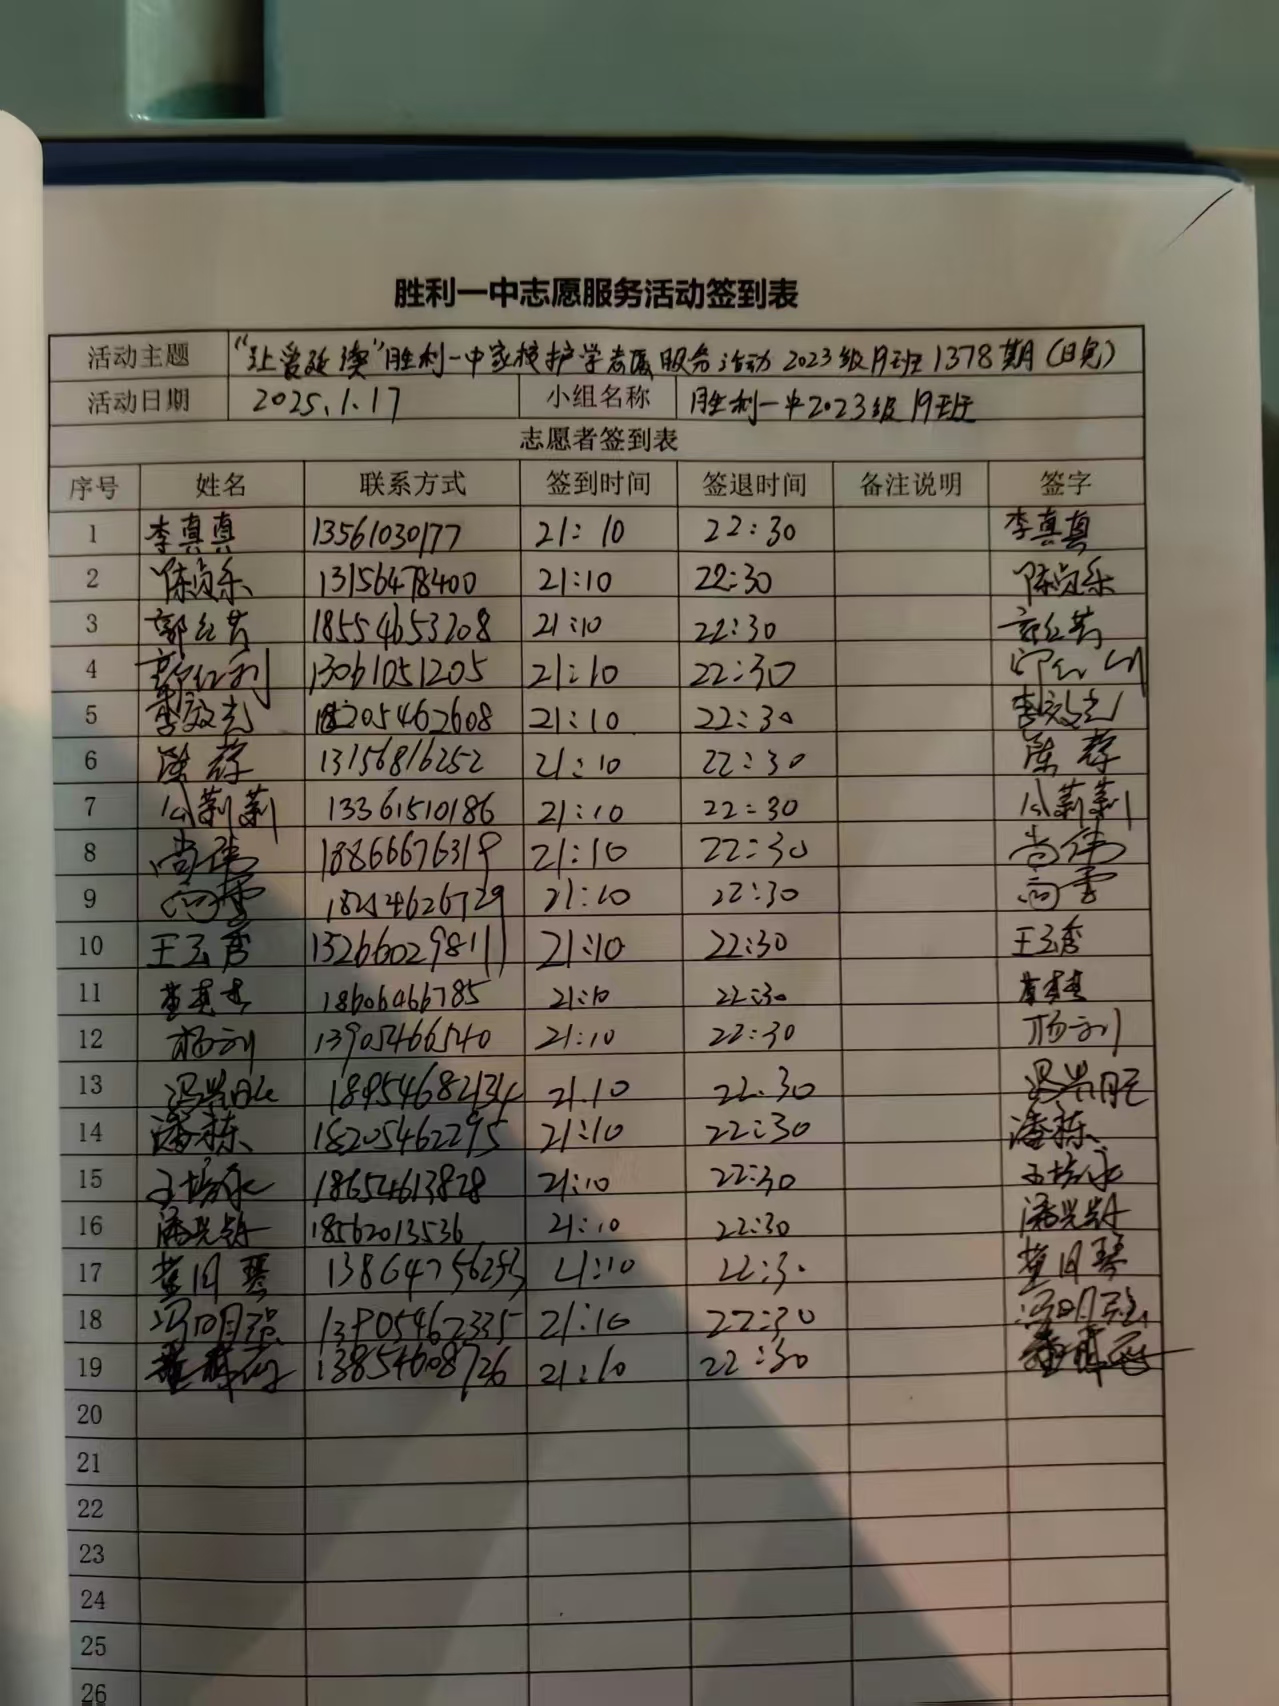 胜利一中志愿服务活动签到表
活动主题 “让爱延续”胜利一中家校护学志愿服务活动 2023级19班 1378期(日晚)
活动日期 2025.1.17 小组名称 胜利一中2023级19班
志愿者签到表
序号 姓名 联系方式 签到时间 签退时间 备注说明 签字
1 李真真 13561030177 21:10 22:30 李真真
2 13156478400 21:10 22:30
3 18554653208 21:10 22:30
4 13061051205 21:10 22:30
5 18205462608 21:10 22:30
6 13156816252 21:10 22:30
7 公莉莉 13361510186 21:10 22:30 公莉莉
8 尚伟 18866676319 21:10 22:30 尚伟
9 21:10 22:30
10 王玉香 13266029811 21:10 22:30 王玉香
11 18606466785 21:10 22:30
12 13905466540 21:10 22:30
13 18954682134 21.10 22.30
14 潘栋 18205462295 21:10 22:30 潘栋
15 18654613828 21:10 22:30
16 18562013536 21:10 22:30
17 董月琴 21:10 22:30 董月琴
18 冯明强 13905462335 21:10 22:30 冯明强
19 13854608726 21:10 22:30
20
21
22
23
24
25
26